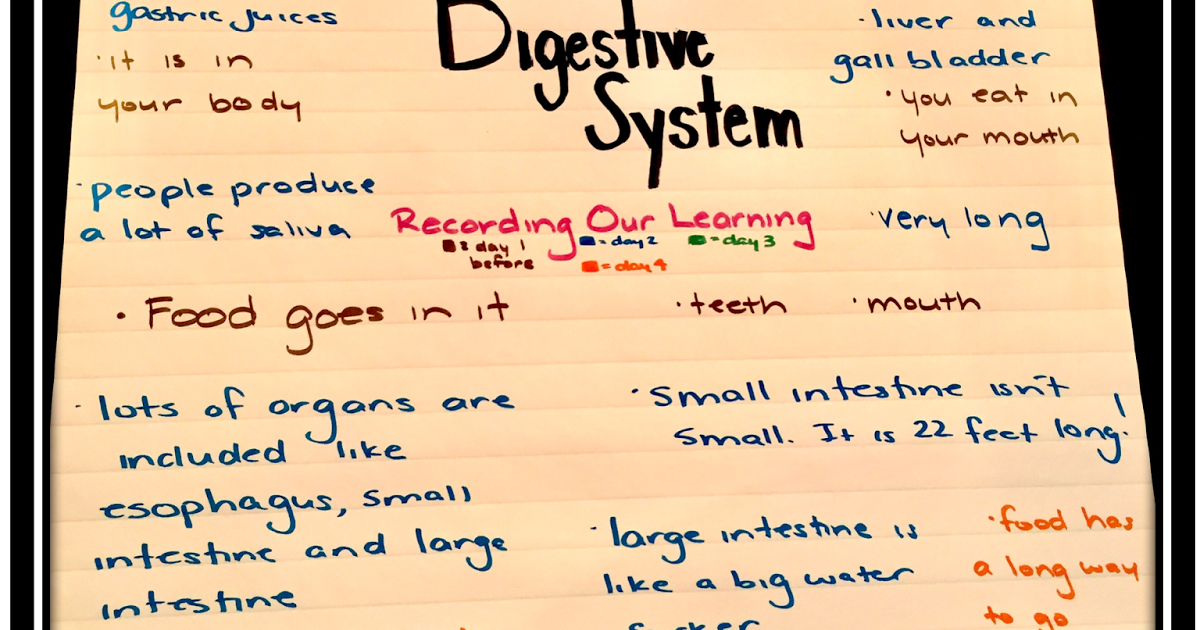 gastric juices
· it is in
your body
Digestive
System
· liver and
gall bladder
· you eat in
your mouth
· people produce
a lot of saliva
Recording Our Learning
= day 1
before
= day 2
= day 3
= day 4
· very long
· Food goes in it
· teeth
· mouth
· lots of organs are
included like
esophagus, small
intestine and large
intestine
· Small intestine isn't
small. It is 22 feet long!
· large intestine is
like a big water
sucker
· food has
a long way
to go